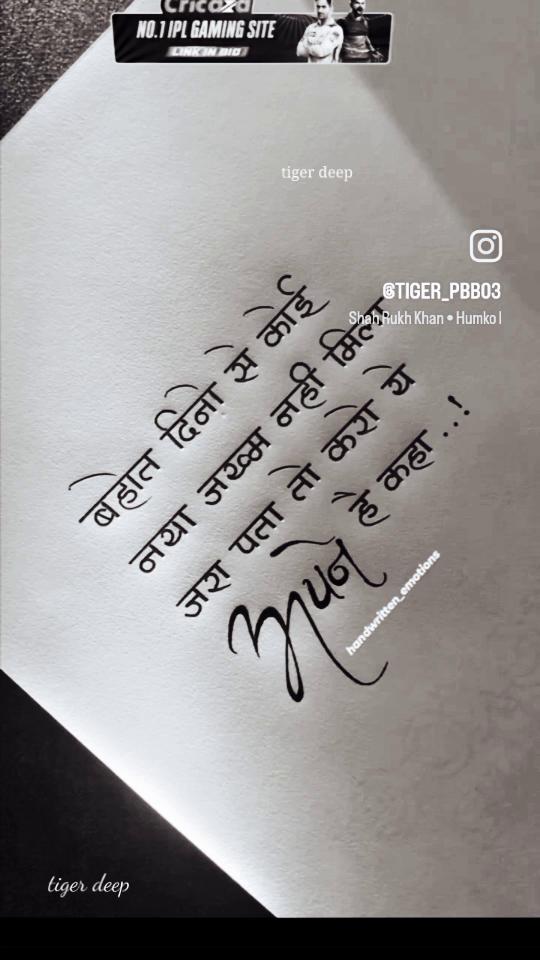 Cricadda
NO.1 IPL GAMING SITE
LINK IN BIO
tiger deep
@TIGER_PBB03
Shah Rukh Khan • Humko l
बेहात दिनो से कोई
नया जख्म नही मिला
जरा पता तो करो ये
अपने है कहा ..!
handwritten_emotions
tiger deep